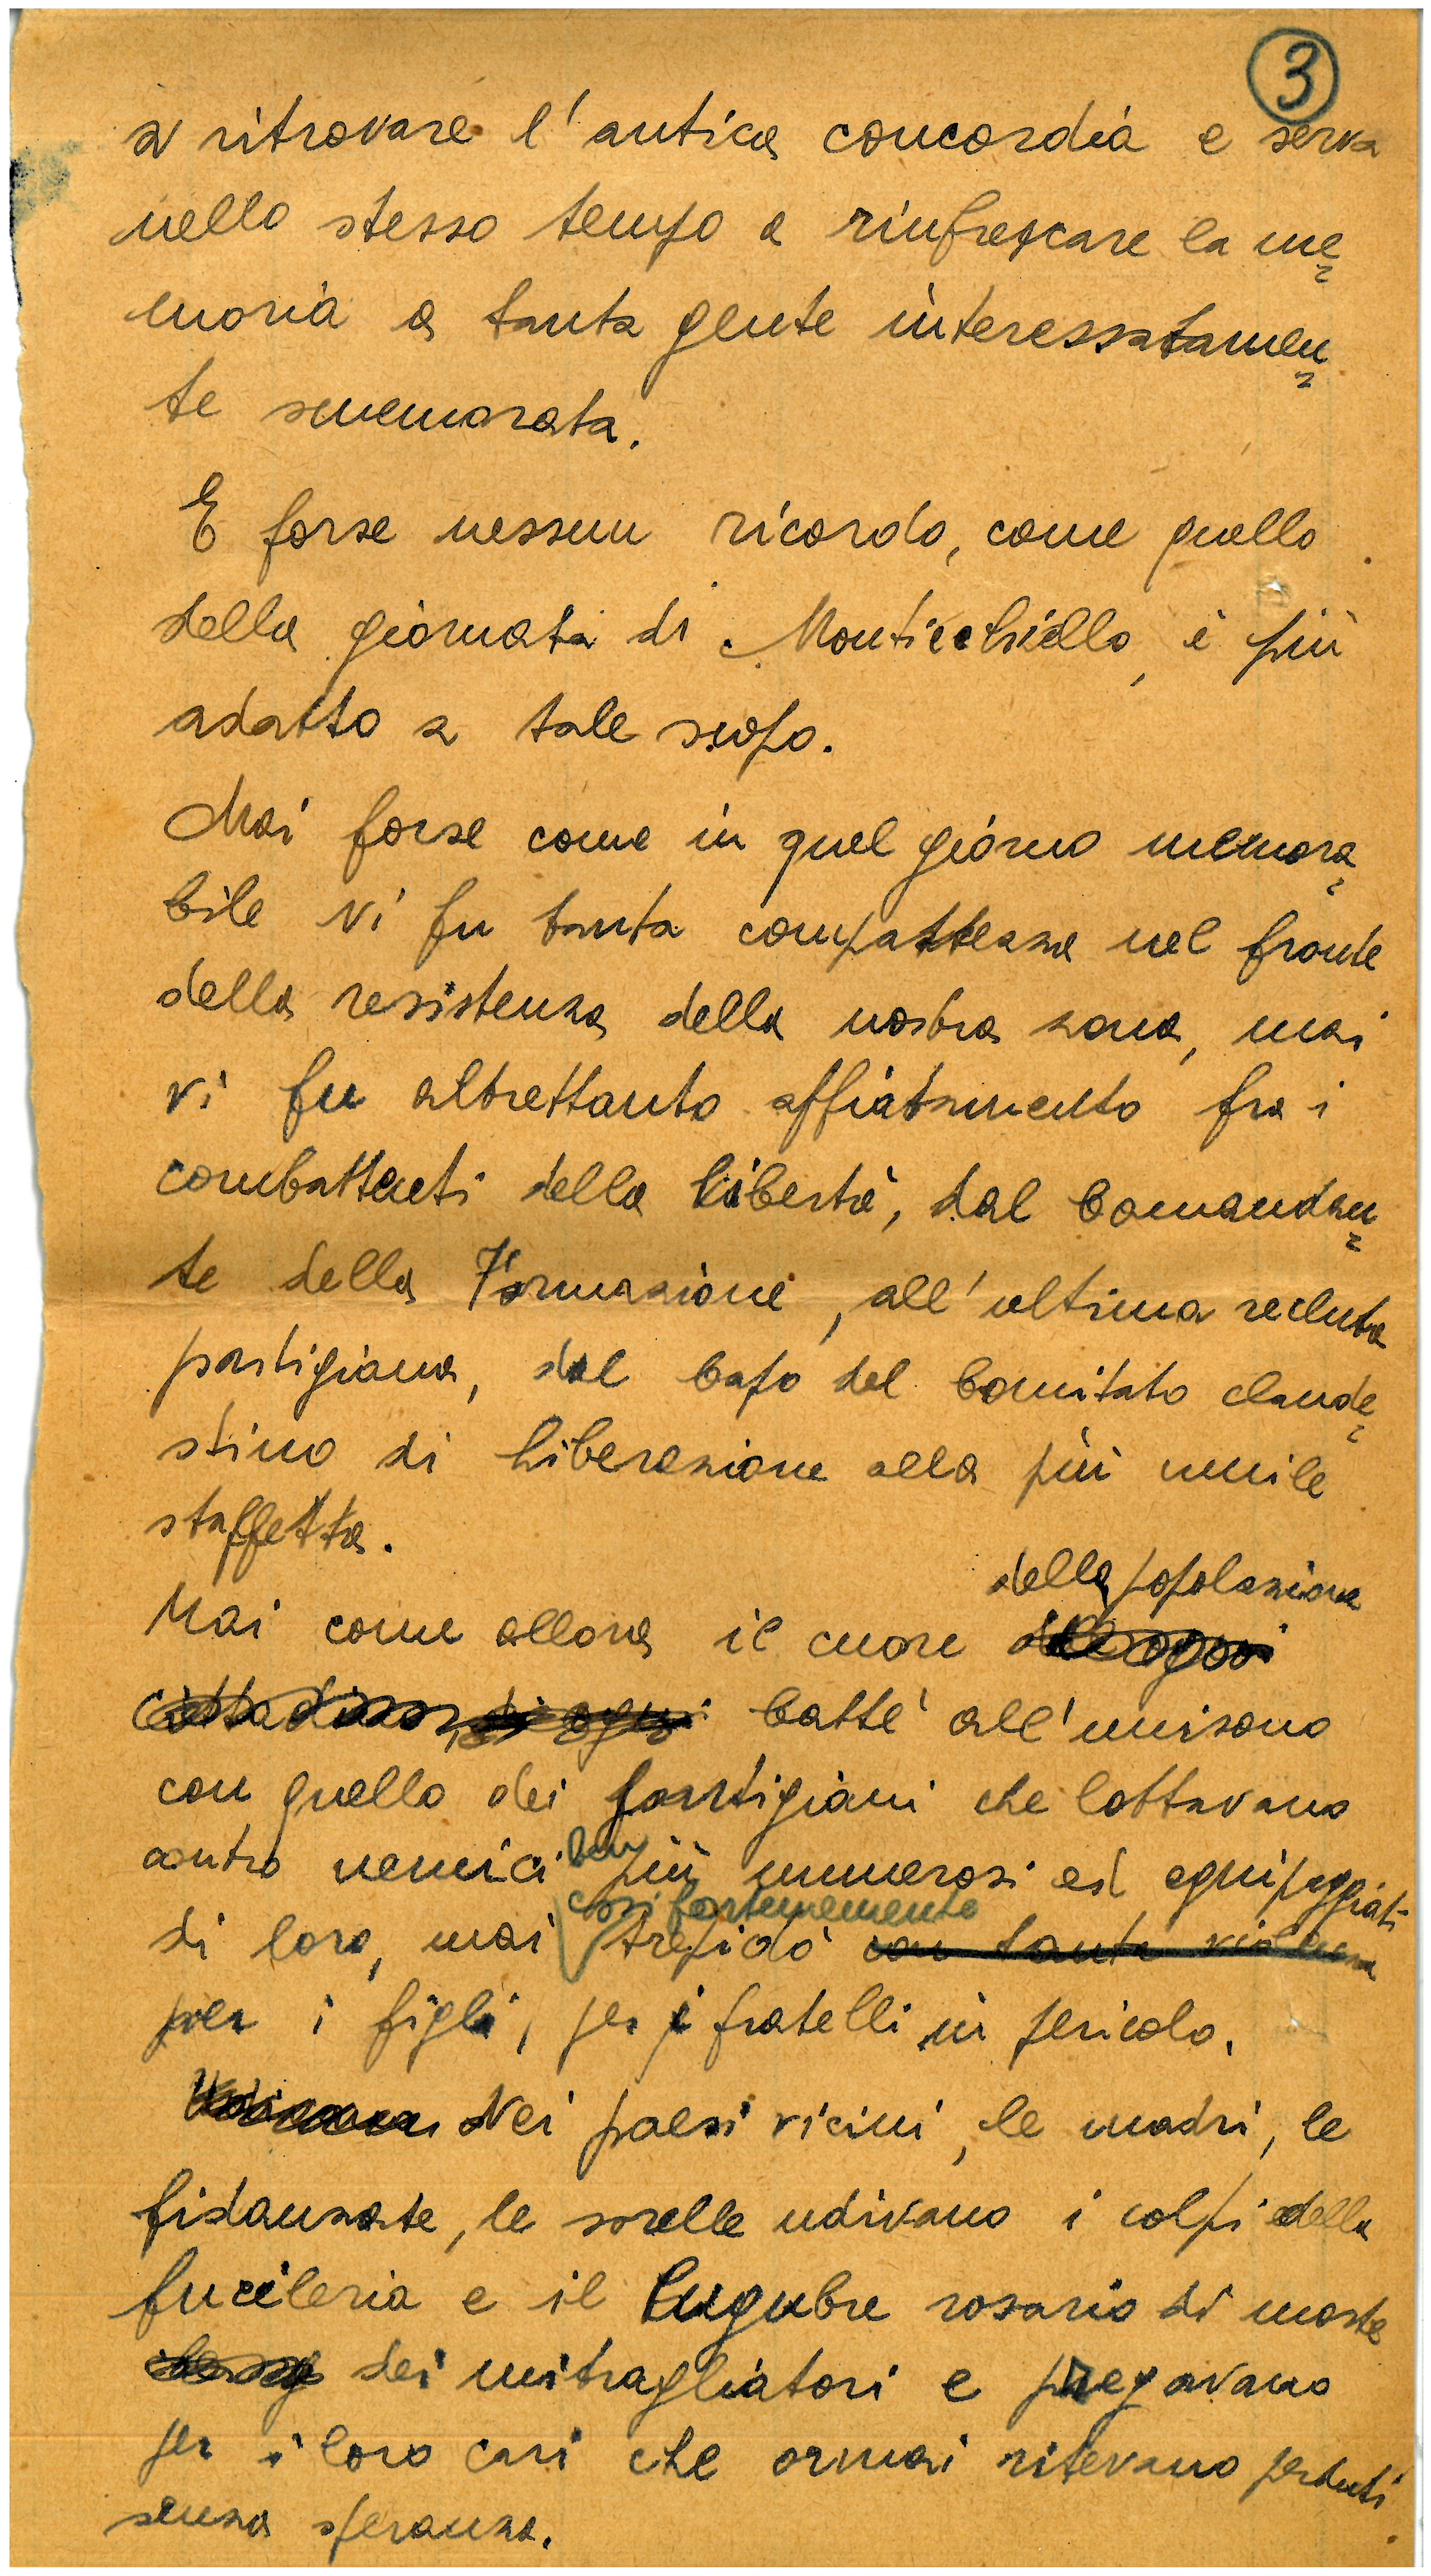 3
a ritrovare l'antica concordia e serva
nello stesso tempo a rinfrescare la me
moria a tanta gente interessatamen
te smemorata.
E forse nessun ricordo, come quello
della giornata di Monticchiello, è più
adatto a tale scopo.
Mai forse come in quel giorno memora
bile vi fu tanta compattezza nel fronte
della resistenza della nostra zona, mai
vi fu altrettanto affiatamento fra i
combattenti della libertà, dal Comandan
te della Formazione, all'ultima recluta
partigiana, dal Capo del Comitato clande
stino di Liberazione alla più umile
staffetta.
della popolazione
Mai come allora il cuore
cittadino, di ogni battè all'unisono
con quello dei partigiani che lottavano
ben
contro nemici più numerosi ed equipaggiati
così fortemente
di loro, mai trepidò con tanta violenza
per i figli, per i fratelli in pericolo.
Nei paesi vicini, le madri, le
fidanzate, le sorelle udivano i colpi della
fucileria e il lugubre rosario di morte
dei mitragliatori e pregavano
per i loro cari che ormai ritevano perduti
senza speranza.